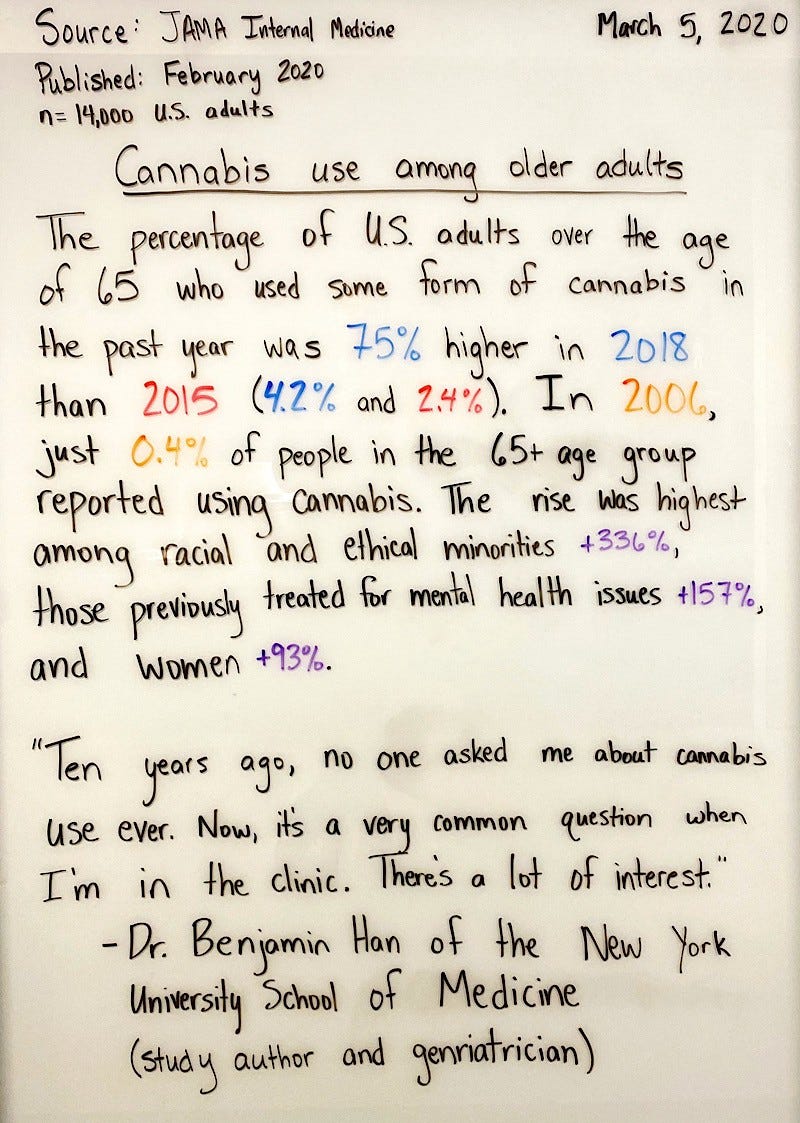 Source: JAMA Internal Medicine
March 5, 2020
Published: February 2020
n= 14,000 U.S. adults
Cannabis use among older adults
The percentage of U.S. adults over the age
of 65 who used some form of cannabis in
the past year was 75% higher in 2018
than 2015 (4.2% and 2.4%). In 2006,
just 0.4% of people in the 65+ age group
reported using cannabis. The rise was highest
among racial and ethical minorities +336%,
those previously treated for mental health issues +157%,
and women +93%.
"Ten years ago, no one asked me about cannabis
use ever. Now, it's a very common question when
I'm in the clinic. There's a lot of interest."
- Dr. Benjamin Han of the New York
University School of Medicine
(study author and genriatrician)